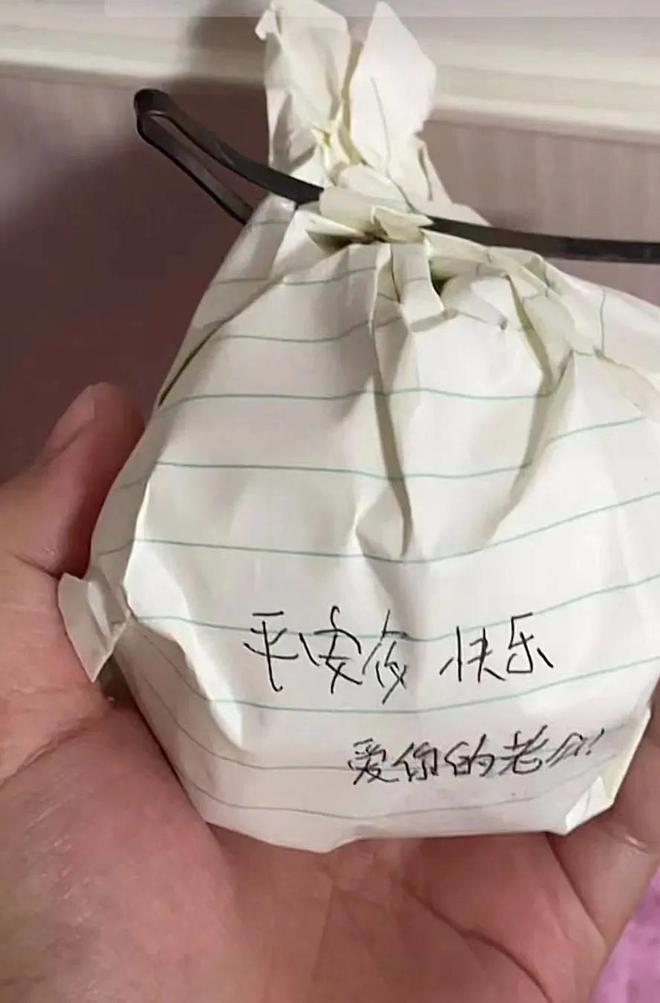 平安夜 快乐
爱你的老公!